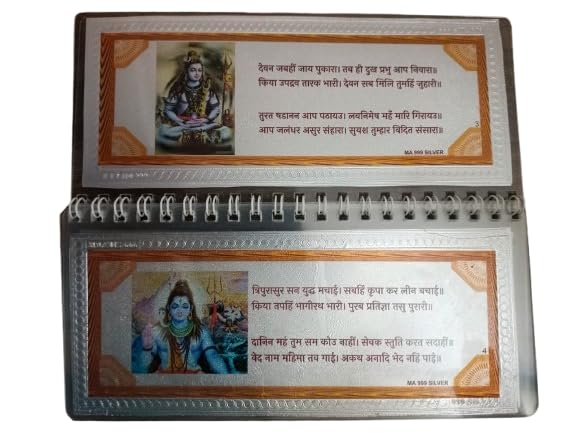 देवन जबहीं जाय पुकारा। तब ही दुख प्रभु आप निवारा॥
किया उपद्रव तारक भारी। देवन सब मिलि तुमहिं जुहारी॥
तुरत षडानन आप पठायउ। लवनिमेष महँ मारि गिरायउ॥
आप जलंधर असुर संहारा। सुयश तुम्हार विदित संसारा॥
3
MA 999 SILVER
त्रिपुरासुर सन युद्ध मचाई। सबहिं कृपा कर लीन बचाई॥
किया तपहिं भागीरथ भारी। पुरब प्रतिज्ञा तसु पुरारी॥
दानिन महं तुम सम कोउ नाहीं। सेवक स्तुति करत सदाहीं॥
वेद नाम महिमा तव गाई। अकथ अनादि भेद नहिं पाई॥
4
MA 999 SILVER